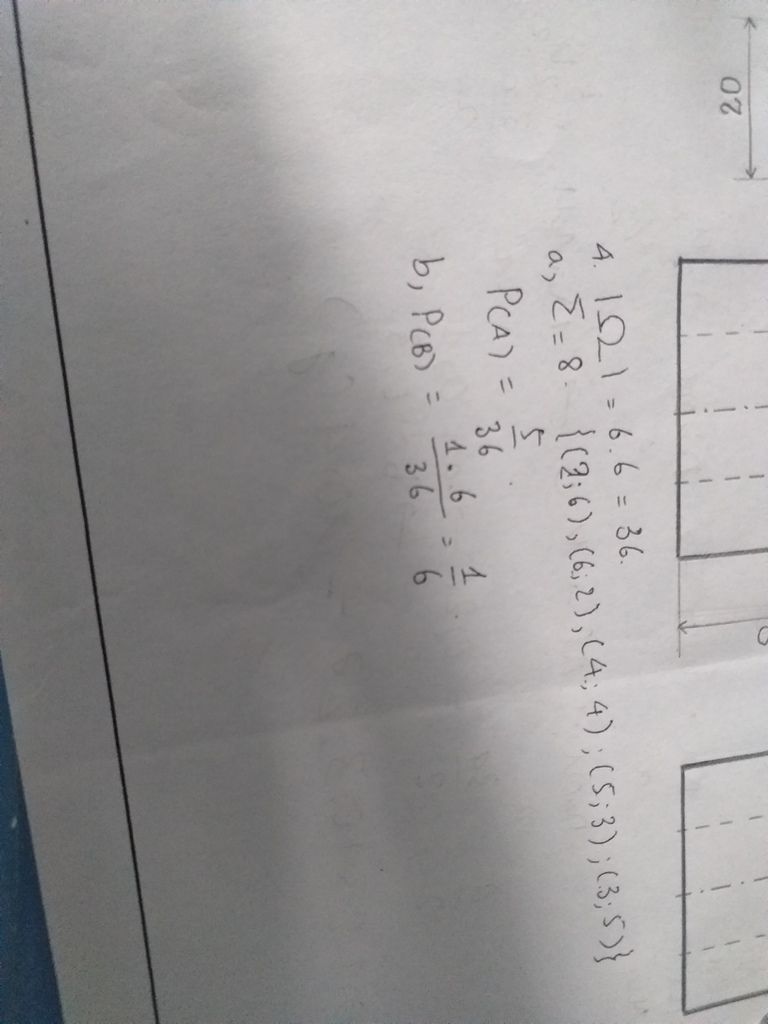 20
4. |Ω| = 6.6 = 36.
a, Σ = 8. {(2;6), (6;2), (4;4); (5;3); (3;5)}
P(A) = 5/36.
b, P(B) = 1.6/36 = 1/6.